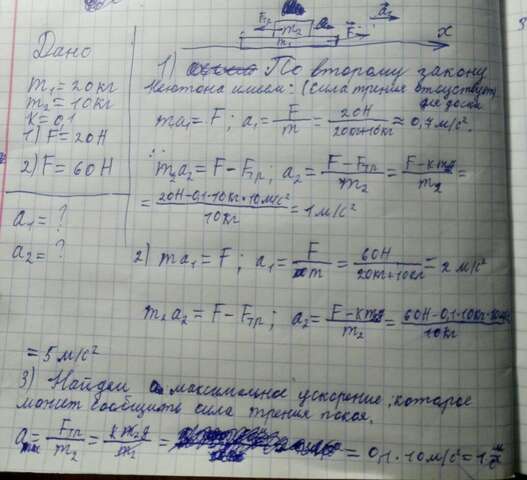 Дано
m₁ = 20кг
m₂ = 10кг
k = 0,1
1) F = 20Н
2) F = 60Н
a₁ = ?
a₂ = ?
Fтр m₂ a₂
m₁ F x
1) По второму закону
Ньютона имеем: (сила трения отсутствует
для доски
ma₁ = F; a₁ = F/m = 20Н/20кг+10кг ≈ 0,7 м/с².
m₂a₂ = F − Fтр; a₂ = F−Fтр/m₂ = F−km₂g/m₂ =
= 20Н−0,1·10кг·10м/с²/10кг = 1м/с²
2) ma₁ = F; a₁ = F/m = 60Н/20кг+10кг = 2 м/с²
m₂a₂ = F − Fтр; a₂ = F−km₂g/m₂ = 60Н−0,1·10кг·10м/с²/10кг
= 5 м/с²
3) Найдем максимальное ускорение, которое
может сообщить сила трения покоя.
a max = Fтр/m₂ = km₂g/m₂ = = 0,1·10м/с² = 1 м/с²